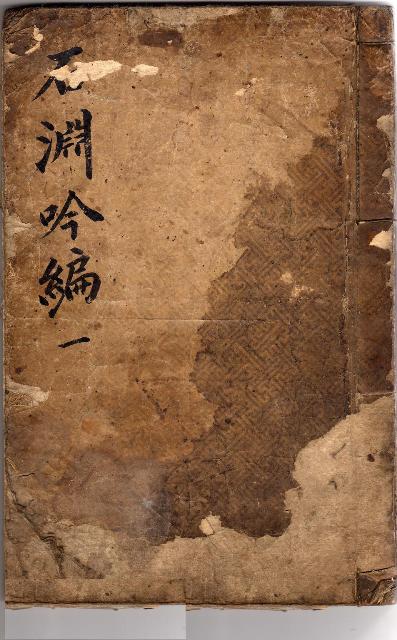 石淵吟編 一